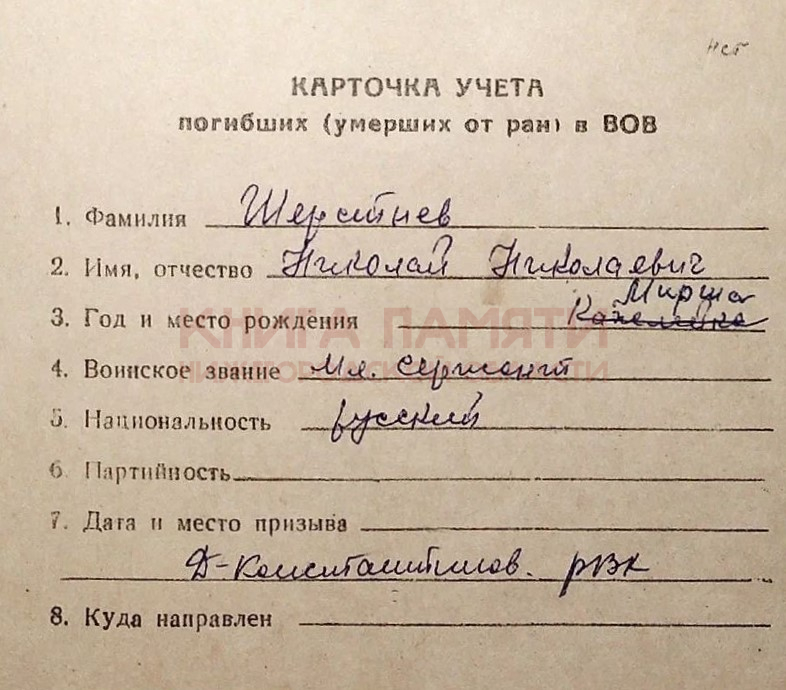 нет
КАРТОЧКА УЧЕТА
погибших (умерших от ран) в ВОВ
1. Фамилия Шерстнев
2. Имя, отчество Николай Николаевич
Мирша
3. Год и место рождения
КНИГА ПАМЯТИ
НИЖЕГОРОДСКОЙ ОБЛАСТИ
4. Воинское звание Мл. сержант
5. Национальность русский
6. Партийность
7. Дата и место призыва
Д-Константинов. РВК
8. Куда направлен